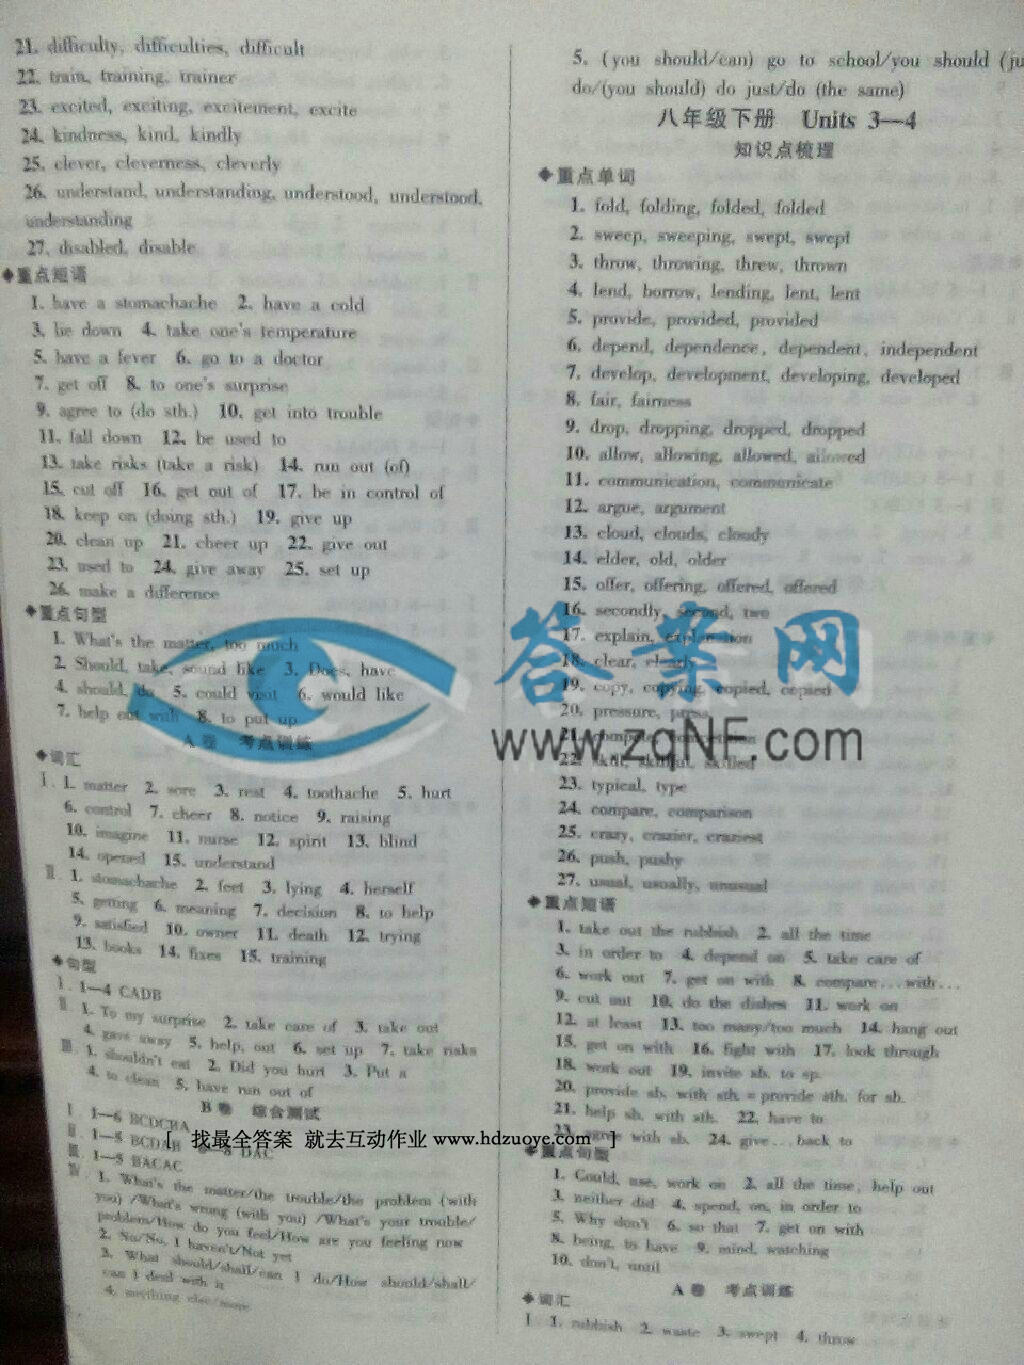 21. difficulty, difficulties, difficult
22. train, training, trainer
23. excited, exciting, excitement, excite
24. kindness, kind, kindly
25. clever, cleverness, cleverly
26. understand, understanding, understood, understood,
understanding
27. disabled, disable
◆重点短语
1. have a stomachache 2. have a cold
3. lie down 4. take one's temperature
5. have a fever 6. go to a doctor
7. get off 8. to one's surprise
9. agree to (do sth.) 10. get into trouble
11. fall down 12. be used to
13. take risks (take a risk) 14. run out (of)
15. cut off 16. get out of 17. be in control of
18. keep on (doing sth.) 19. give up
20. clean up 21. cheer up 22. give out
23. used to 24. give away 25. set up
26. make a difference
◆重点句型
1. What's the matter, too much
2. Should, take, sound like 3. Does, have
4. should, do 5. could visit 6. would like
7. help out with 8. to put up
A卷 考点训练
◆词汇
Ⅰ. 1. matter 2. sore 3. rest 4. toothache 5. hurt
6. control 7. cheer 8. notice 9. raising
10. imagine 11. nurse 12. spirit 13. blind
14. opened 15. understand
Ⅱ. 1. stomachache 2. feet 3. lying 4. herself
5. getting 6. meaning 7. decision 8. to help
9. satisfied 10. owner 11. death 12. trying
13. books 14. fixes 15. training
◆句型
Ⅰ. 1—4 CADB
Ⅱ. 1. To my surprise 2. take care of 3. take out
4. gave away 5. help, out 6. set up 7. take risks
Ⅲ. 1. shouldn't eat 2. Did you hurt 3. Put a
4. to clean 5. have run out of
B卷 综合测试
Ⅰ. 1—6 BCDCBA
Ⅱ. 1—5 BCDAB 6—8 DAC
Ⅲ. 1—5 BACAC
Ⅳ. 1. What's the matter/the trouble/the problem (with
you) /What's wrong (with you) /What's your trouble/
problem/How do you feel/How are you feeling now
2. No/No, I haven't/Not yet
3. What should/shall/can I do/How should/shall/
can I deal with it
4. anything else/more
5. (you should/can) go to school/you should (ju
do/(you should) do just/do (the same)
八年级下册 Units 3—4
知识点梳理
◆重点单词
1. fold, folding, folded, folded
2. sweep, sweeping, swept, swept
3. throw, throwing, threw, thrown
4. lend, borrow, lending, lent, lent
5. provide, provided, provided
6. depend, dependence, dependent, independent
7. develop, development, developing, developed
8. fair, fairness
9. drop, dropping, dropped, dropped
10. allow, allowing, allowed, allowed
11. communication, communicate
12. argue, argument
13. cloud, clouds, cloudy
14. elder, old, older
15. offer, offering, offered, offered
16. secondly, second, two
17. explain, explanation
18. clear, clearly
19. copy, copying, copied, copied
20. pressure, press
21. compete, competition
22. skill, skillful, skilled
23. typical, type
24. compare, comparison
25. crazy, crazier, craziest
26. push, pushy
27. usual, usually, unusual
◆重点短语
1. take out the rubbish 2. all the time
3. in order to 4. depend on 5. take care of
6. work out 7. get on with 8. compare...with...
9. cut out 10. do the dishes 11. work on
12. at least 13. too many/too much 14. hang out
15. get on with 16. fight with 17. look through
18. work out 19. invite sb. to sp.
20. provide sb. with sth. = provide sth. for sb.
21. help sb. with sth. 22. have to
23. agree with sb. 24. give...back to
◆重点句型
1. Could, use, work on 2. all the time, help out
3. neither did 4. spend, on, in order to
5. Why don't 6. so that 7. get on with
8. being, to have 9. mind, watching
10. don't, until
A卷 考点训练
◆词汇
Ⅰ 1. rubbish 2. waste 3. swept 4. throw
答案网
www.zqNF.com
[ 找最全答案 就去互动作业 www.hdzuoye.com ]